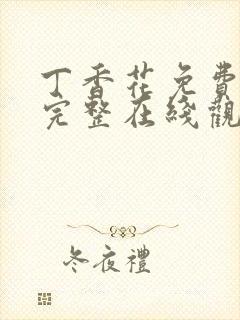 丁香花免費
完整在綫觀
冬夜禮